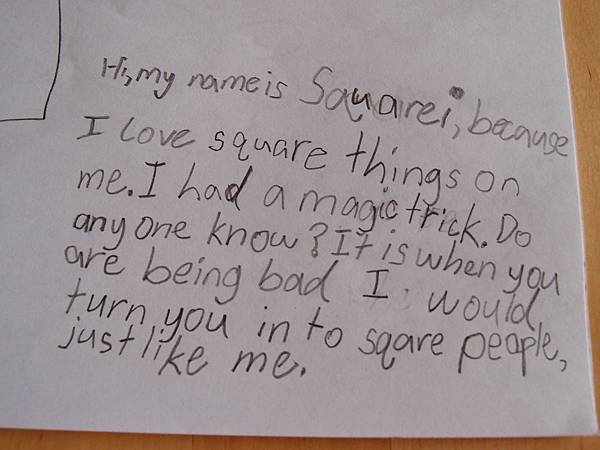 Hi, my name is Squarei, because
I love square things on
me. I had a magic trick. Do
any one know? It is when you
are being bad I would
turn you in to sqare people,
just like me.